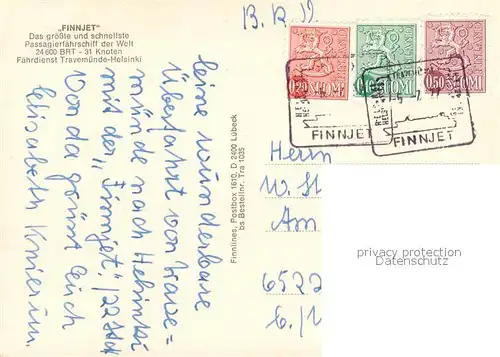 „FINNJET"
Das größte und schnellste
Passagierfährschiff der Welt
24 600 BRT - 31 Knoten
Fährdienst Travemünde-Helsinki
Eine wunderbare
Überfahrt von Trave=
münde nach Helsinki
mit der „Finnjet"/22 Std
Von da grüßt Euch
Elisabeth
Finnlines, Postbox 1610, D 2400 Lübeck
bs Bestellnr. Tra 1035
0,20 SUOMI
0,10 SUOMI
0,50 SUOMI
FINNJET
FINNJET
Herrn
W. St
Am
6522
privacy protection
Datenschutz